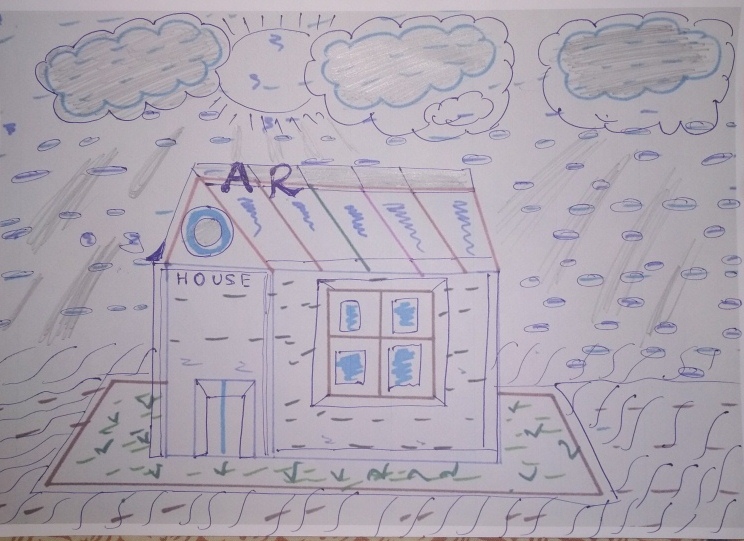 AR
HOUSE